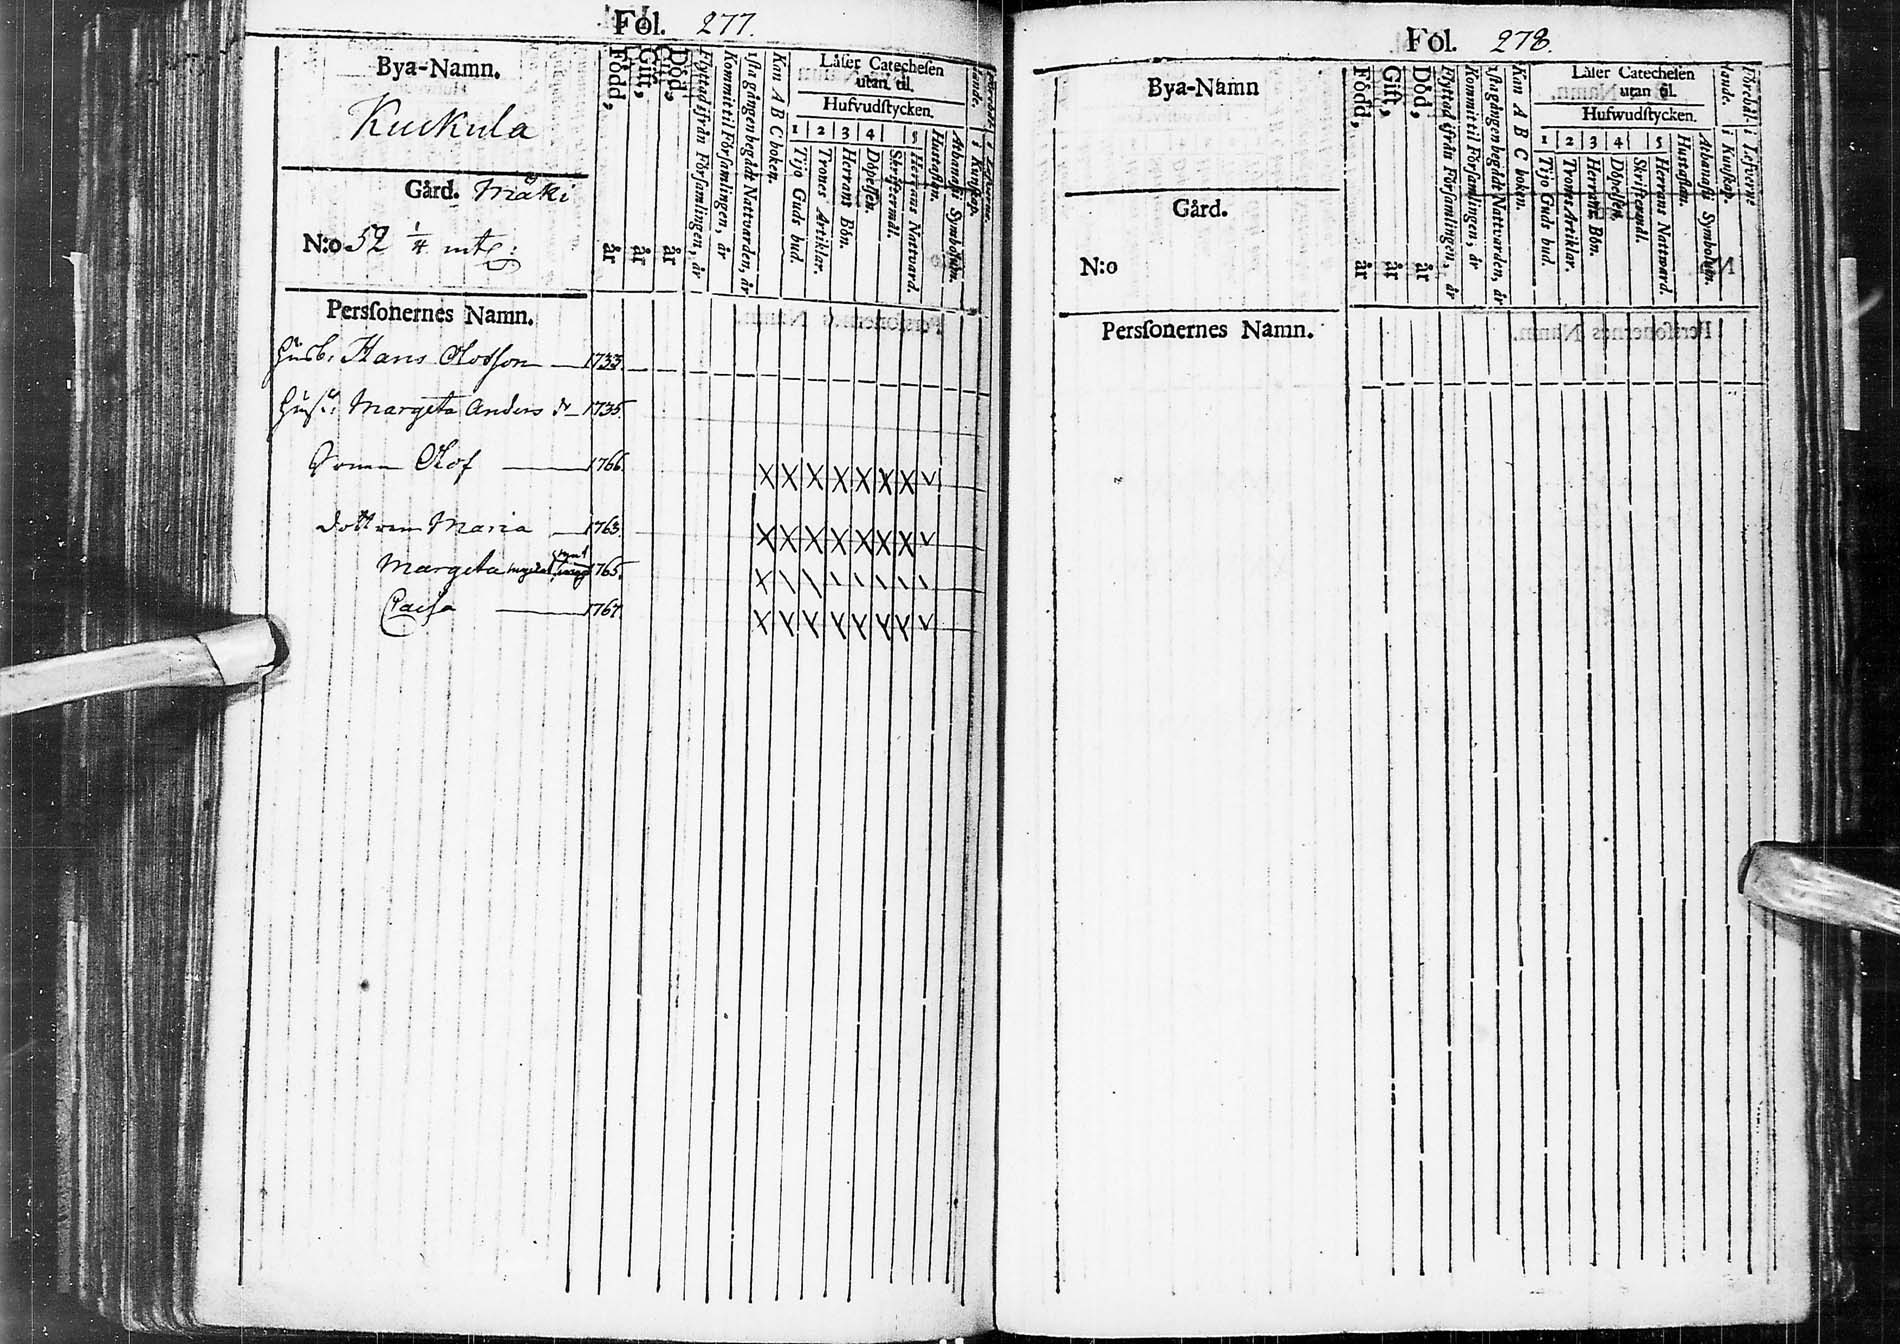 Fol. 277.
Bya-Namn.
Kuckula
Gård. Mäki
N:o 52 1/4 mtl:
Född, år
Gift, år
Död, år
Flyttad ifrån Församlingen, år
Kommit til Församlingen, år
1sta gången begådt Nattvarden, år
Kan A B C boken.
Läser Catechesen
utan til.
Hufvudstycken.
1 2 3 4 5
Tijo Guds bud.
Trones Artiklar.
Herrans Bön.
Döpelsen.
Skriftermål.
Herrans Nattvard.
Hustaflan.
Athanasii Symbolum.
i Kunskap.
i Lefverne.
Personernes Namn.
Husb: Hans Olofson 1733.
Hust: Margeta Anders dr 1735.
Sonen Olof 1766.
X X X X X X X V
Dottren Maria 1763.
X X X X X X X V
Margeta 1765.
Caisa 1767.
Fol. 278.
Bya-Namn
Gård.
N:o
Född, år
Gift, år
Död, år
Flyttad ifrån Församlingen, år
Kommit til Församlingen, år
1sta gången begådt Nattvarden, år
Kan A B C boken.
Läser Catechesen
utan til.
Hufwudstycken.
1 2 3 4 5
Tijo Guds bud.
Trones Artiklar.
Herrans Bön.
Döpelsen,
Skriftermål.
Herrans Natward.
Hustaflan.
Athanasii Symbolum.
i Kunskap.
i Lefverne
Personernes Namn.